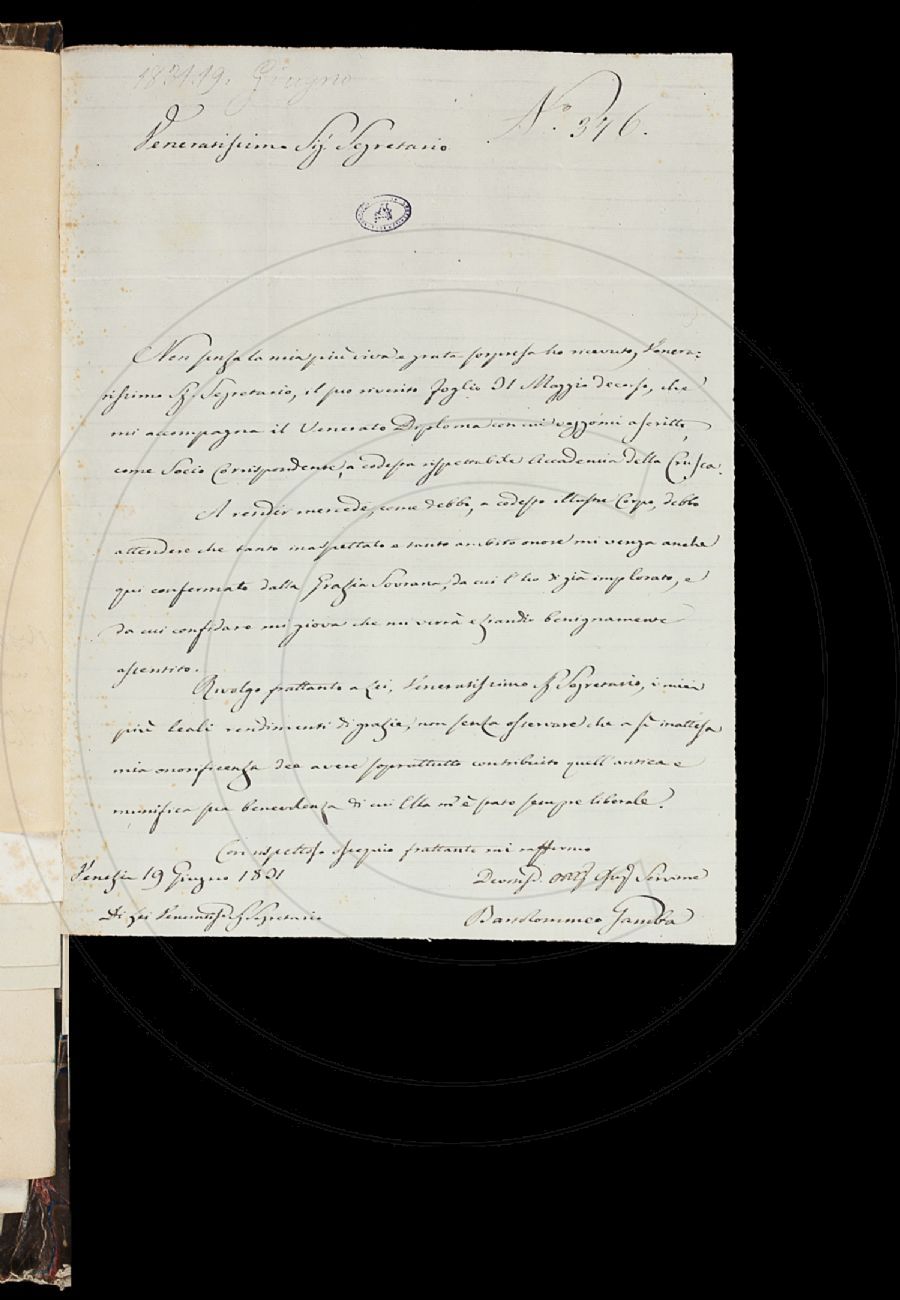 1831.19. Giugno
N.º 376.
Veneratissimo Sig.r Segretario
Non senza la mia più viva e grata sorpresa ho ricevuto, Venera:
tissimo Sig.r Segretario, il suo riverito foglio 31 Maggio decorso, che
mi accompagna il Venerato Diploma con cui veggomi ascritto,
come Socio Corrispondente, a codesta rispettabile Accademia della Crusca.
A render mercede, come debbo, a codesto illustre Corpo, debbo
attendere che tanto inaspettato e tanto ambito onore mi venga anche
qui confermato dalla Grazia Sovrana, da cui l'ho di già implorato, e
da cui confidare mi giova che mi verrà esaudir benignamente
assentito.
Rivolgo frattanto a Lei, Veneratissimo Sig.r Segretario, i miei
più leali rendimenti di grazie, non senza osservare che a sì inattesa
mia onorificenza dee avere soprattutto contribuito quell'antica e
munifica sua benevolenza di cui Ella m'è stato sempre liberale.
Con rispettoso ossequio frattanto mi raffermo
Venezia 19 Giugno 1831
Di Lei Veneratiss. Sig.r Segretario
Devotiss. Servitore
Bartolommeo Gamba